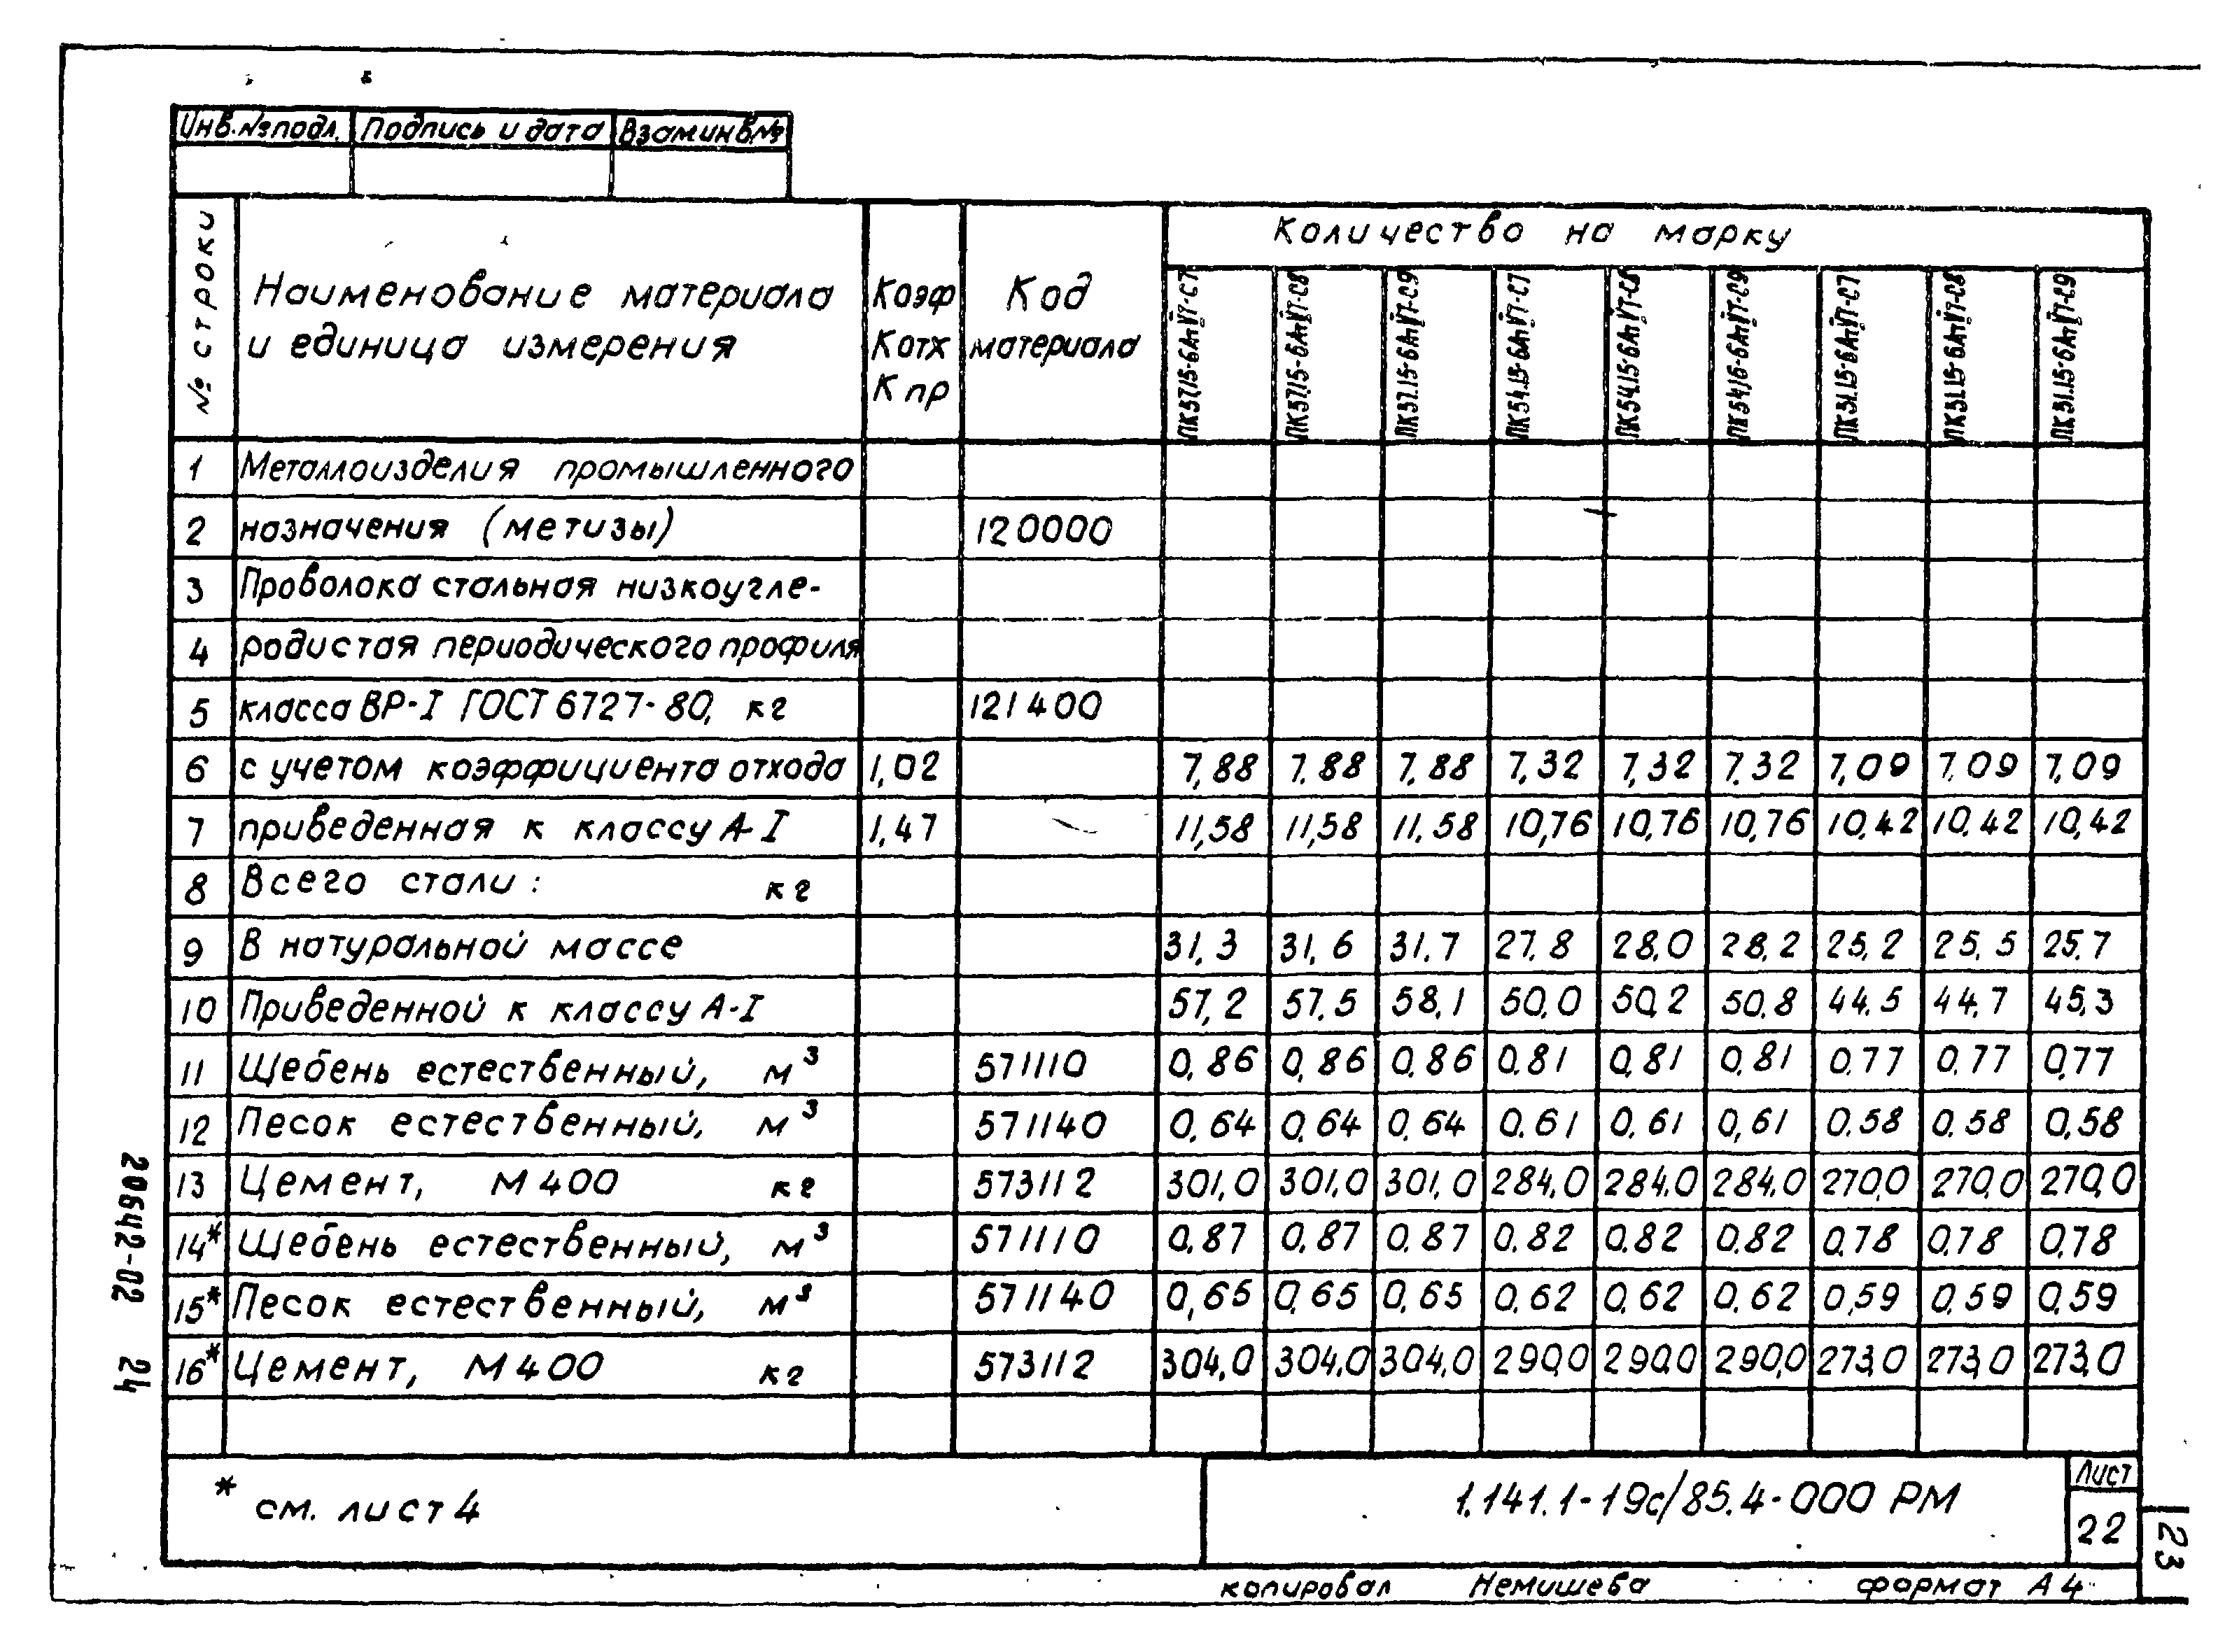 Инв. № подл. Подпись и дата Взам инв №
№ строки Наименование материала и единица измерения Коэф Котх Кпр Код материала Количество на марку
ПК57.15-6АтVТ-С7 ПК57.15-6АтVТ-С8 ПК57.15-6АтVТ-С9 ПК54.15-6АтVТ-С7 ПК54.15-6АтVТ-С8 ПК54.15-6АтVТ-С9 ПК51.15-6АтVТ-С7 ПК51.15-6АтVТ-С8 ПК51.15-6АтVТ-С9
1 Металлоизделия промышленного
2 назначения (метизы) 120000
3 Проволока стальная низкоугле-
4 родистая периодического профиля
5 класса ВР-I ГОСТ 6727-80, кг 121400
6 с учетом коэффициента отхода 1,02 7,88 7.88 7,88 7,32 7,32 7.32 7,09 7.09 7,09
7 приведенная к классу А-I 1,47 11,58 11,58 11.58 10,76 10,76 10,76 10,42 10,42 10,42
8 Всего стали: кг
9 В натуральной массе 31,3 31,6 31.7 27.8 28,0 28,2 25,2 25,5 25.7
10 Приведенной к классу А-I 57,2 57.5 58,1 50,0 50,2 50,8 44.5 44.7 45,3
11 Щебень естественный, м³ 571110 0,86 0,86 0,86 0,81 0,81 0,81 0,77 0,77 0,77
12 Песок естественный, м³ 571140 0,64 0,64 0,64 0.61 0,61 0,61 0.58 0.58 0,58
13 Цемент, М400 кг 573112 301,0 301,0 301,0 284,0 284,0 284,0 270,0 270,0 270,0
14* Щебень естественный, м³ 571110 0,87 0,87 0.87 0.82 0.82 0.82 0,78 0,78 0,78
15* Песок естественный, м³ 571140 0,65 0,65 0,65 0.62 0.62 0.62 0,59 0,59 0,59
16* Цемент, М400 кг 573112 304,0 304,0 304,0 290,0 290,0 290,0 273,0 273,0 273,0
* см. лист 4
1.141.1-19с/85.4-000 РМ
Лист
22
23
копировал Немишева формат А4
20642-02 24